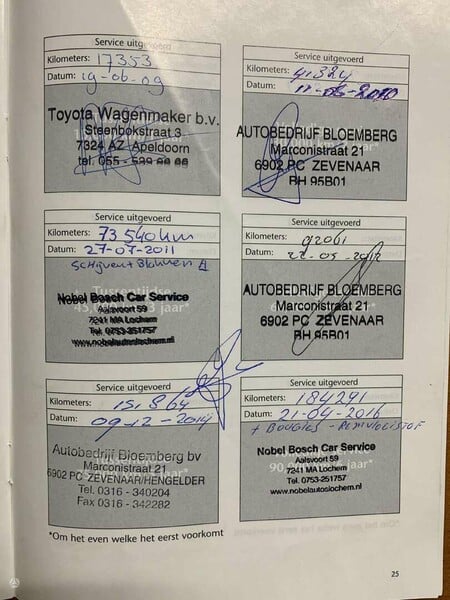 Service uitgevoerd
Kilometers: 17353
Datum: 19-06-09
Toyota Wagenmaker b.v.
Steenbokstraat 3
7324 AZ Apeldoorn
tel. 055 -
Service uitgevoerd
Kilometers: 41.324
Datum:
AUTOBEDRIJF BLOEMBERG
Marconistraat 21
6902 PC ZEVENAAR
RH 95B01
Service uitgevoerd
Kilometers: 73540km
Datum: 27-07-2011
Nobel Bosch Car Service
Aalsvoort 59
7241 MA Lochem
Tel. 0753-251757
www.nobelautoslochem.nl
Service uitgevoerd
Kilometers: 92061
Datum:
AUTOBEDRIJF BLOEMBERG
Marconistraat 21
6902 PC ZEVENAAR
RH 95B01
Service uitgevoerd
Kilometers:
Datum: 09-12-2014
Autobedrijf Bloemberg bv
Marconistraat 21
6902 PC ZEVENAAR/HENGELDER
Tel. 0316 - 340204
Fax 0316 - 342282
Service uitgevoerd
Kilometers: 184291
Datum: 21-04-2016
+ BOUGIES - REMVLOEISTOF
Nobel Bosch Car Service
Aalsvoort 59
7241 MA Lochem
Tel. 0753-251757
www.nobelautoslochem.nl
*Om het even welke het eerst voorkomt
25